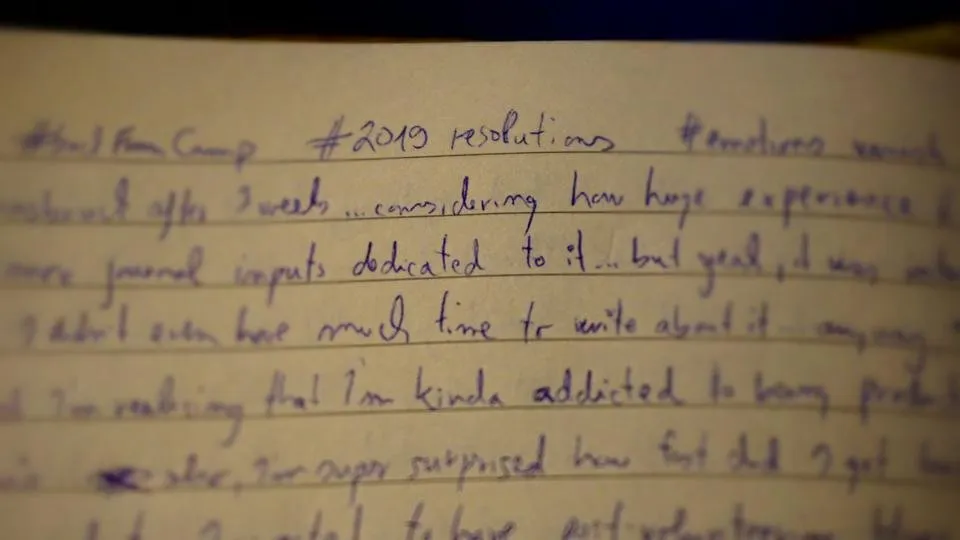 Camp #2019 resolutions #emotions
after 3 weeks...considering how huge experience
more journal inputs dodicated to it... but yeah, it was
I didn't even have much time to write about it... anyway
I'm realising that I'm kinda addicted to being
also, I'm super surprised how fast did I got
to have post-volunteering